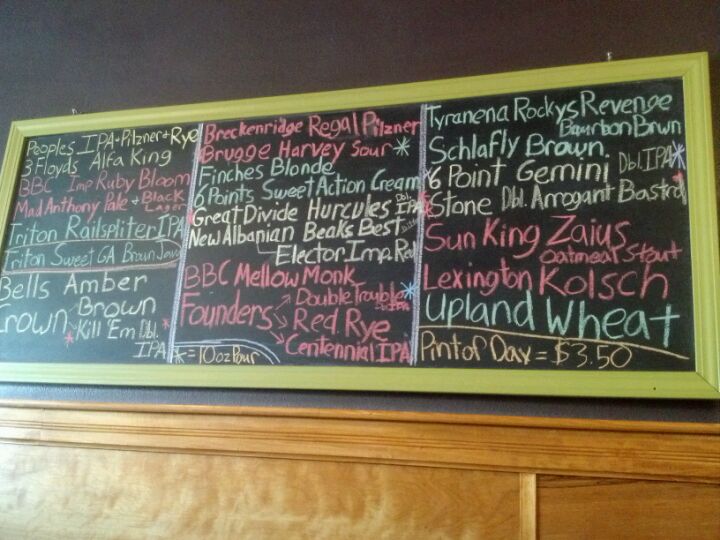 Peoples IPA + Pilzner + Rye
3 Floyds Alfa King
BBC Imp Ruby Bloom
Mad Anthony Pale + Black
Lager
Triton Railspliter IPA
Triton Sweet GA Brown Jenny
Bells Amber
Crown Brown
Kill 'Em Dbl.
IPA
Breckenridge Regal Pilzner
Brugge Harvey Sour *
Finches Blonde
6 Points Sweet Action Cream
Great Divide Hurcules Dbl. IPA
New Albanian Beaks Best
Elector Imp. Red
BBC Mellow Monk
Founders → Double Trouble *
→ Red Rye
→ Centennial IPA
* = 10oz Pour
Tyranena Rockys Revenge
Bourbon Brwn
Schlafly Brown
6 Point Gemini Dbl. IPA *
Stone Dbl. Arrogant Bastrd
Sun King Zaius
Oatmeal Stout
Lexington Kolsch
Upland Wheat
Pint of Day = $3.50